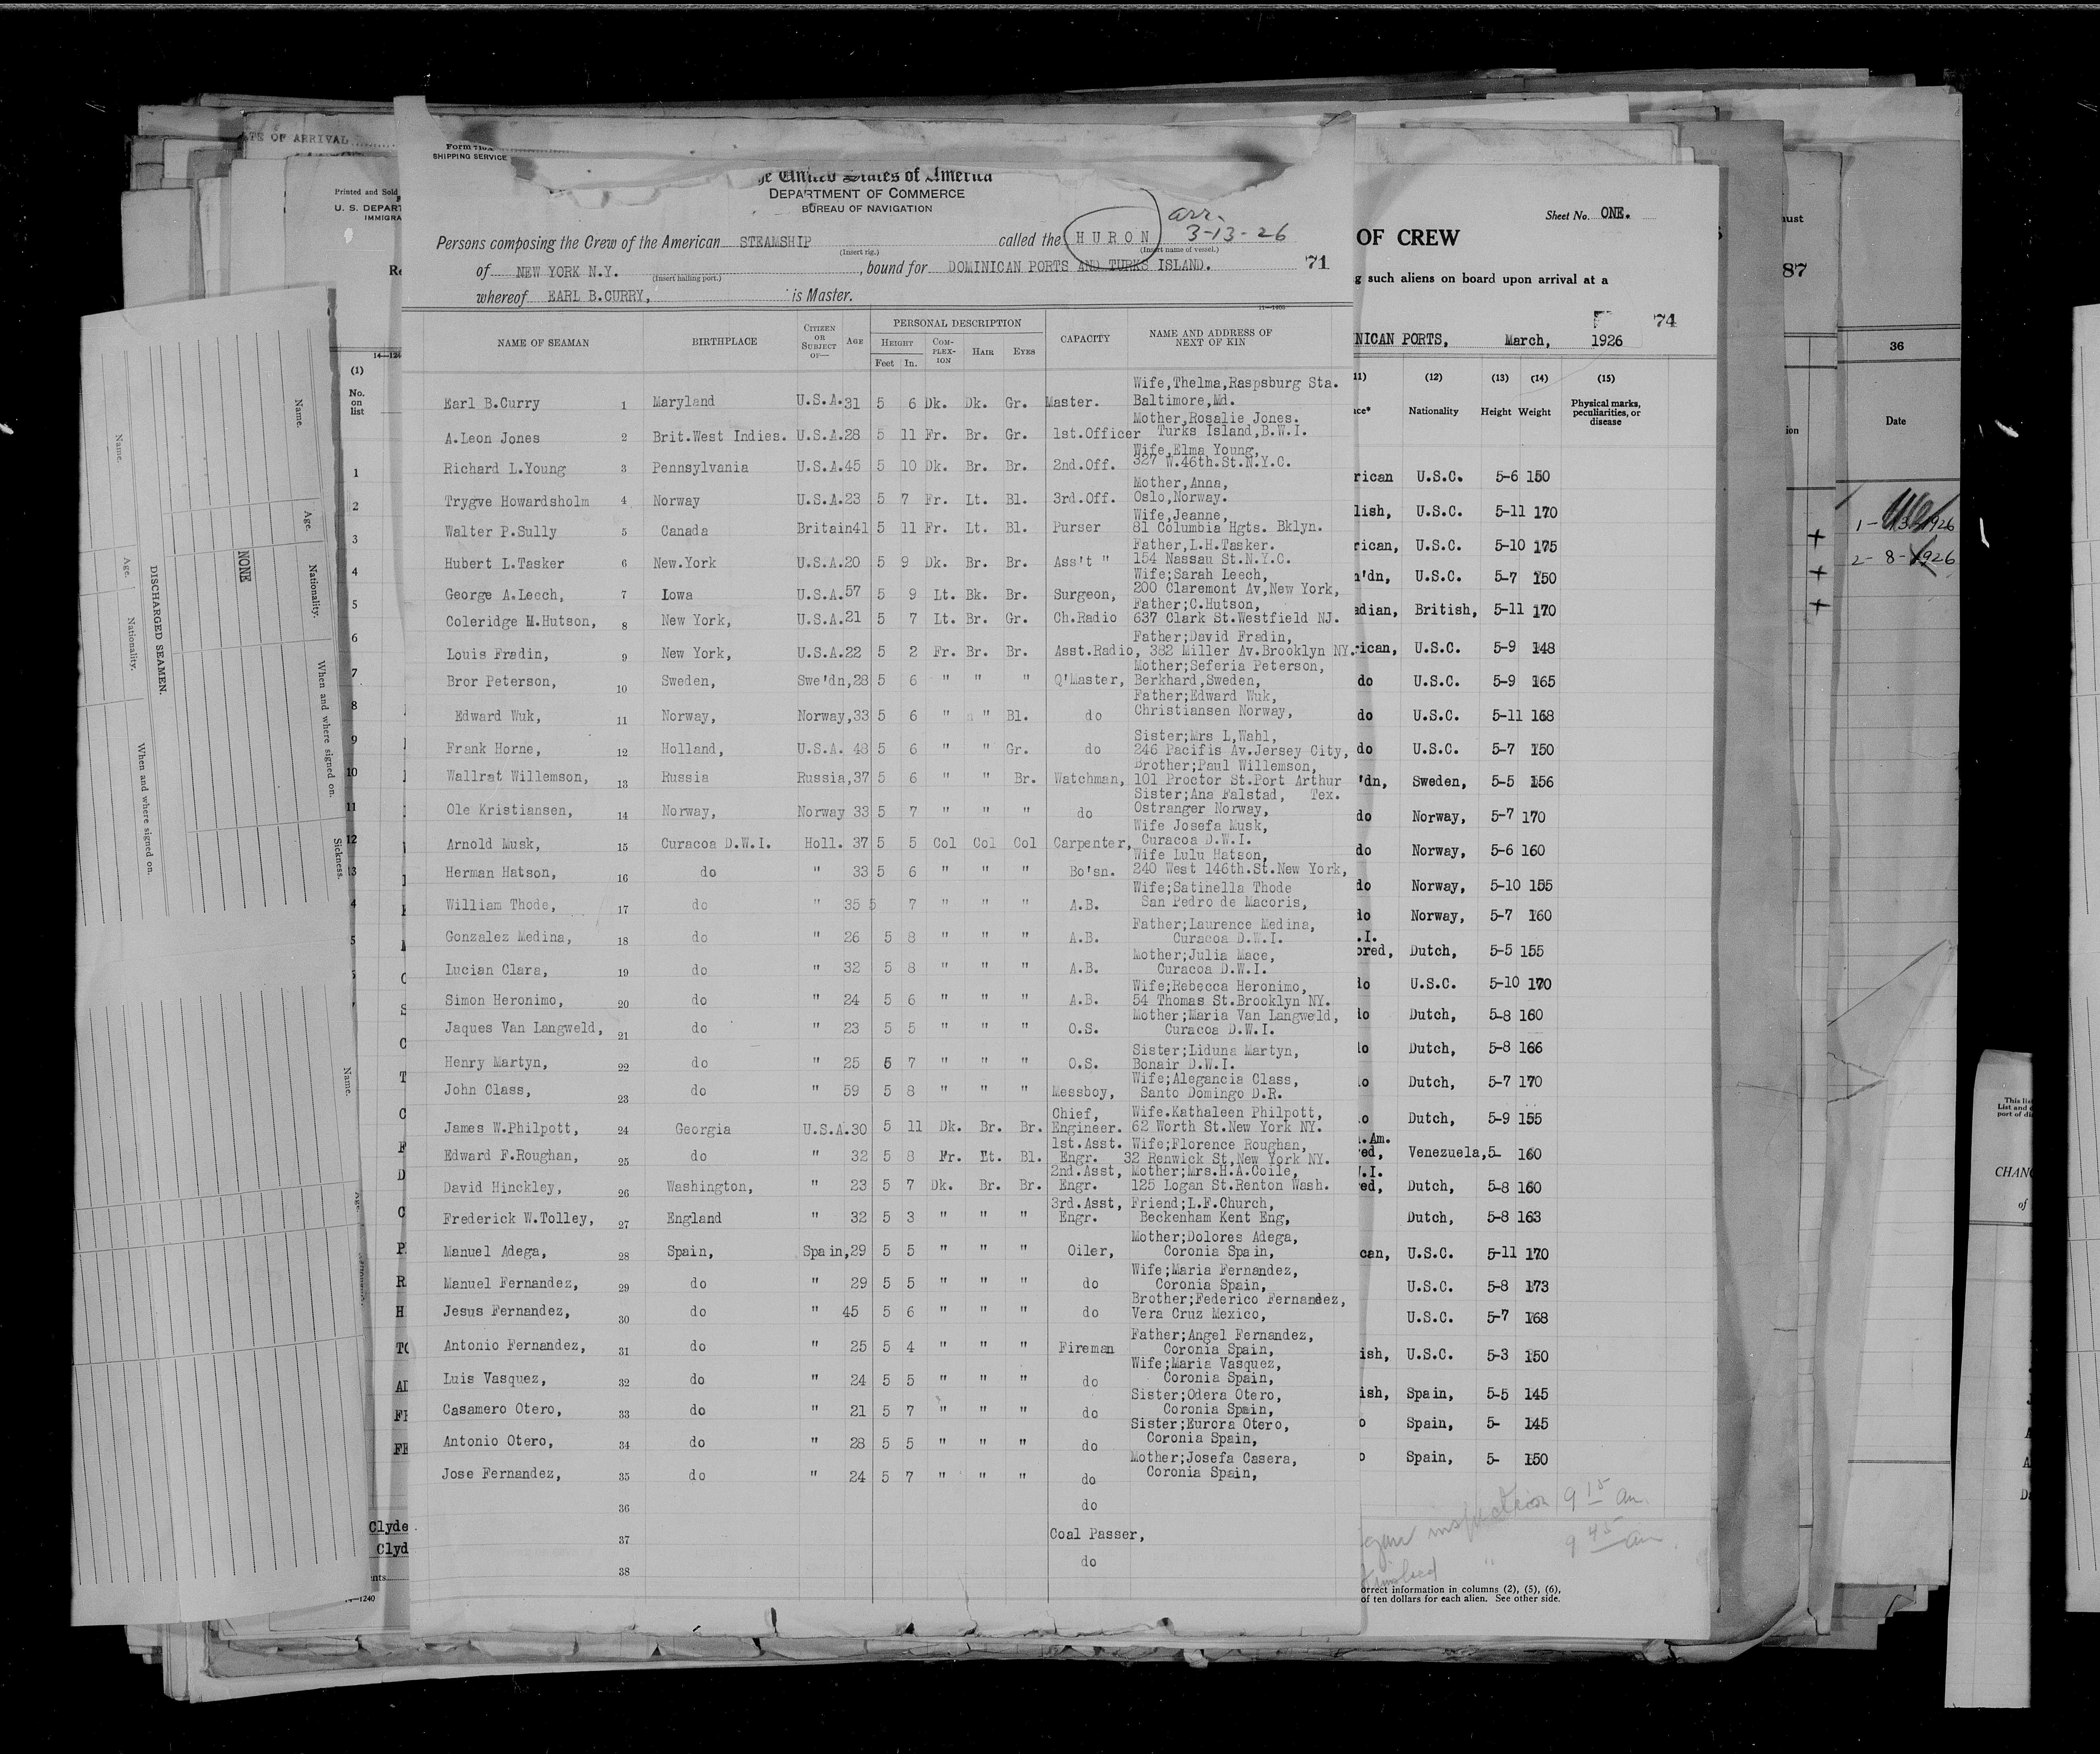 SHIPPING SERVICE
States of America
DEPARTMENT OF COMMERCE
BUREAU OF NAVIGATION
arr.
3-13-26
Persons composing the Crew of the American STEAMSHIP called the HURON
(Insert rig.) (Insert name of vessel.)
of NEW YORK N.Y. , bound for DOMINICAN PORTS AND TURKS ISLAND. 71
(Insert hailing port.)
whereof EARL B.CURRY, is Master.
NAME OF SEAMAN BIRTHPLACE CITIZEN OR SUBJECT OF— AGE PERSONAL DESCRIPTION CAPACITY NAME AND ADDRESS OF NEXT OF KIN
HEIGHT COM-PLEX-ION HAIR EYES
Feet In.
Earl B.Curry 1 Maryland U.S.A. 31 5 6 Dk. Dk. Gr. Master. Wife,Thelma,Raspsburg Sta. Baltimore,Md.
A.Leon Jones 2 Brit.West Indies. U.S.A. 28 5 11 Fr. Br. Gr. 1st.Officer Mother,Rosalie Jones. Turks Island,B.W.I.
Richard L.Young 3 Pennsylvania U.S.A. 45 5 10 Dk. Br. Br. 2nd.Off. Wife,Elma Young, 327 W.46th.St.N.Y.C.
Trygve Howardsholm 4 Norway U.S.A. 23 5 7 Fr. Lt. Bl. 3rd.Off. Mother,Anna, Oslo,Norway.
Walter P.Sully 5 Canada Britain 41 5 11 Fr. Lt. Bl. Purser Wife,Jeanne, 81 Columbia Hgts. Bklyn.
Hubert L.Tasker 6 New.York U.S.A. 20 5 9 Dk. Br. Br. Ass't " Father,L.H.Tasker. 154 Nassau St.N.Y.C.
George A.Leech, 7 Iowa U.S.A. 57 5 9 Lt. Bk. Br. Surgeon, Wife;Sarah Leech, 200 Claremont Av,New York,
Coleridge M.Hutson, 8 New York, U.S.A. 21 5 7 Lt. Br. Gr. Ch.Radio Father;C.Hutson, 637 Clark St.Westfield NJ.
Louis Fradin, 9 New York, U.S.A. 22 5 2 Fr. Br. Br. Asst.Radio, Father;David Fradin, 382 Miller Av.Brooklyn NY.
Bror Peterson, 10 Sweden, Swe'dn, 28 5 6 " " " Q'Master, Mother;Seferia Peterson, Berkhard,Sweden,
Edward Wuk, 11 Norway, Norway, 33 5 6 " " Bl. do Father;Edward Wuk, Christiansen Norway,
Frank Horne, 12 Holland, U.S.A. 48 5 6 " " Gr. do Sister;Mrs L,Wahl, 246 Pacifis Av.Jersey City,
Wallrat Willemson, 13 Russia Russia, 37 5 6 " " Br. Watchman, Brother;Paul Willemson, 101 Proctor St.Port Arthur Tex.
Ole Kristiansen, 14 Norway, Norway 33 5 7 " " " do Sister;Ana Falstad, Ostranger Norway,
Arnold Musk, 15 Curacoa D.W.I. Holl. 37 5 5 Col Col Col Carpenter, Wife Josefa Musk, Curacoa D.W.I.
Herman Hatson, 16 do " 33 5 6 " " " Bo'sn. Wife Lulu Hatson, 240 West 146th.St.New York,
William Thode, 17 do " 35 5 7 " " " A.B. Wife;Satinella Thode San Pedro de Macoris,
Gonzalez Medina, 18 do " 26 5 8 " " " A.B. Father;Laurence Medina, Curacoa D.W.I.
Lucian Clara, 19 do " 32 5 8 " " " A.B. Mother;Julia Mace, Curacoa D.W.I.
Simon Heronimo, 20 do " 24 5 6 " " " A.B. Wife;Rebecca Heronimo, 54 Thomas St.Brooklyn NY.
Jaques Van Langweld, 21 do " 23 5 5 " " " O.S. Mother;Maria Van Langweld, Curacoa D.W.I.
Henry Martyn, 22 do " 25 5 7 " " " O.S. Sister;Liduna Martyn, Bonair D.W.I.
John Class, 23 do " 59 5 8 " " " Messboy, Wife;Alegancia Class, Santo Domingo D.R.
James W.Philpott, 24 Georgia U.S.A. 30 5 11 Dk. Br. Br. Chief, Engineer. Wife.Kathaleen Philpott, 62 Worth St.New York NY.
Edward F.Roughan, 25 do " 32 5 8 Fr. Lt. Bl. 1st.Asst. Engr. Wife;Florence Roughan, 32 Renwick St,New York NY.
David Hinckley, 26 Washington, " 23 5 7 Dk. Br. Br. 2nd.Asst, Engr. Mother;Mrs.H.A.Coile, 125 Logan St.Renton Wash.
Frederick W.Tolley, 27 England " 32 5 3 " " " 3rd.Asst, Engr. Friend;L.F.Church, Beckenham Kent Eng,
Manuel Adega, 28 Spain, Spain, 29 5 5 " " " Oiler, Mother;Dolores Adega, Coronia Spain,
Manuel Fernandez, 29 do " 29 5 5 " " " do Wife;Maria Fernandez, Coronia Spain,
Jesus Fernandez, 30 do " 45 5 6 " " " do Brother;Federico Fernandez, Vera Cruz Mexico,
Antonio Fernandez, 31 do " 25 5 4 " " " Fireman Father;Angel Fernandez, Coronia Spain,
Luis Vasquez, 32 do " 24 5 5 " " " do Wife;Maria Vasquez, Coronia Spain,
Casamero Otero, 33 do " 21 5 7 " " " do Sister;Odera Otero, Coronia Spain,
Antonio Otero, 34 do " 28 5 5 " " " do Sister;Eurora Otero, Coronia Spain,
Jose Fernandez, 35 do " 24 5 7 " " " do Mother;Josefa Casera, Coronia Spain,
36 do
37 Coal Passer,
38 do
Sheet No. ONE.
OF CREW
such aliens on board upon arrival at a
74
PORTS, March, 1926
(12) (13) (14) (15)
Nationality Height Weight Physical marks, peculiarities, or disease
U.S.C. 5-6 150
U.S.C. 5-11 170
U.S.C. 5-10 175
U.S.C. 5-7 150
British, 5-11 170
U.S.C. 5-9 148
do U.S.C. 5-9 165
do U.S.C. 5-11 168
do U.S.C. 5-7 150
Sweden, 5-5 156
do Norway, 5-7 170
do Norway, 5-6 160
do Norway, 5-10 155
do Norway, 5-7 160
Dutch, 5-5 155
U.S.C. 5-10 170
Dutch, 5-8 160
Dutch, 5-8 166
Dutch, 5-7 170
Dutch, 5-9 155
Venezuela, 5- 160
Dutch, 5-8 160
Dutch, 5-8 163
U.S.C. 5-11 170
U.S.C. 5-8 173
U.S.C. 5-7 168
U.S.C. 5-3 150
Spain, 5-5 145
Spain, 5- 145
Spain, 5- 150
inspection 9 15 am
9 45 am
information in columns (2), (5), (6),
of ten dollars for each alien. See other side.
87
36
Date
2-8-1926
OF ARRIVAL
Printed and Sold
(1)
No. on list
1
2
3
4
5
6
7
8
9
10
11
12
Clyde
DISCHARGED SEAMEN.
Name. Age. Nationality. When and where signed on. Sickness.
NONE
Name. Age. Nationality. When and where signed on.
Name.